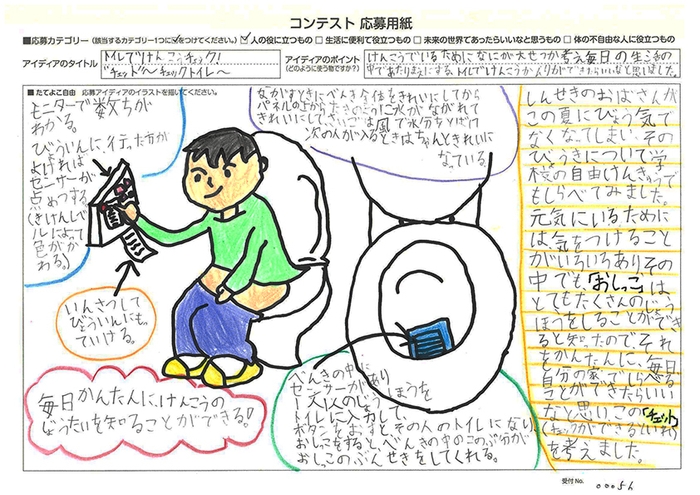 コンテスト 応募用紙
■応募カテゴリー（該当するカテゴリー1つに✓をつけてください。） ☑人の役に立つもの □生活に便利で役立つもの □未来の世界であったらいいなと思うもの □体の不自由な人に役立つもの
アイディアのタイトル
トイレでけんこうチェック！
"チェック〜チェックトイレ〜
アイディアのポイント
（どのように使う物ですか？）
けんこうでいるためになにが大せつか考え毎日の生活の
中であたりまえにするトイレでけんこうかん りができたらいいなと思いました。
■たてよこ自由 応募アイディアのイラストを描いてください。
モニターで数ちが
わかる。
びょういんに行った方が
よければ
センサーが
点めつする
(きけんレベ
ルによって
色がか
わる。)
ながすときにべんき全体をきれいにしてから
パネルの上から
きれいにして、さいごは風で水分をとばけ
次の人が入るときはちゃんときれいに
なっている
しんせきのおばさんが
この夏にびょう気で
なくなってしまい、その
びょうきについて学
校の自由けんきゅうで
もしらべてみました。
元気にいるために
は、気をつけること
がいろいろあり、その
中でも、「おしっこ」は
とてもたくさんのじょう
ほうをしることができ
ると知ったのでそれ
をかんたんに、毎日
自分の家でしらべる
ことができたらいい
なと思い、この「チェック
チェックができるといれ」
を考えました。
いんさつして
びょういんにもっ
ていける。
毎日かんたんに、けんこうの
じょうたいを知ることができる！
べんきの中に
センサーがあり
1人1人のじょうほうを
トイレに入力して、
ボタンをおすとその人のトイレになり
おしっこをすると、べんきの中のこのぶ分が
おしっこのぶんせきをしてくれる。
受付No.